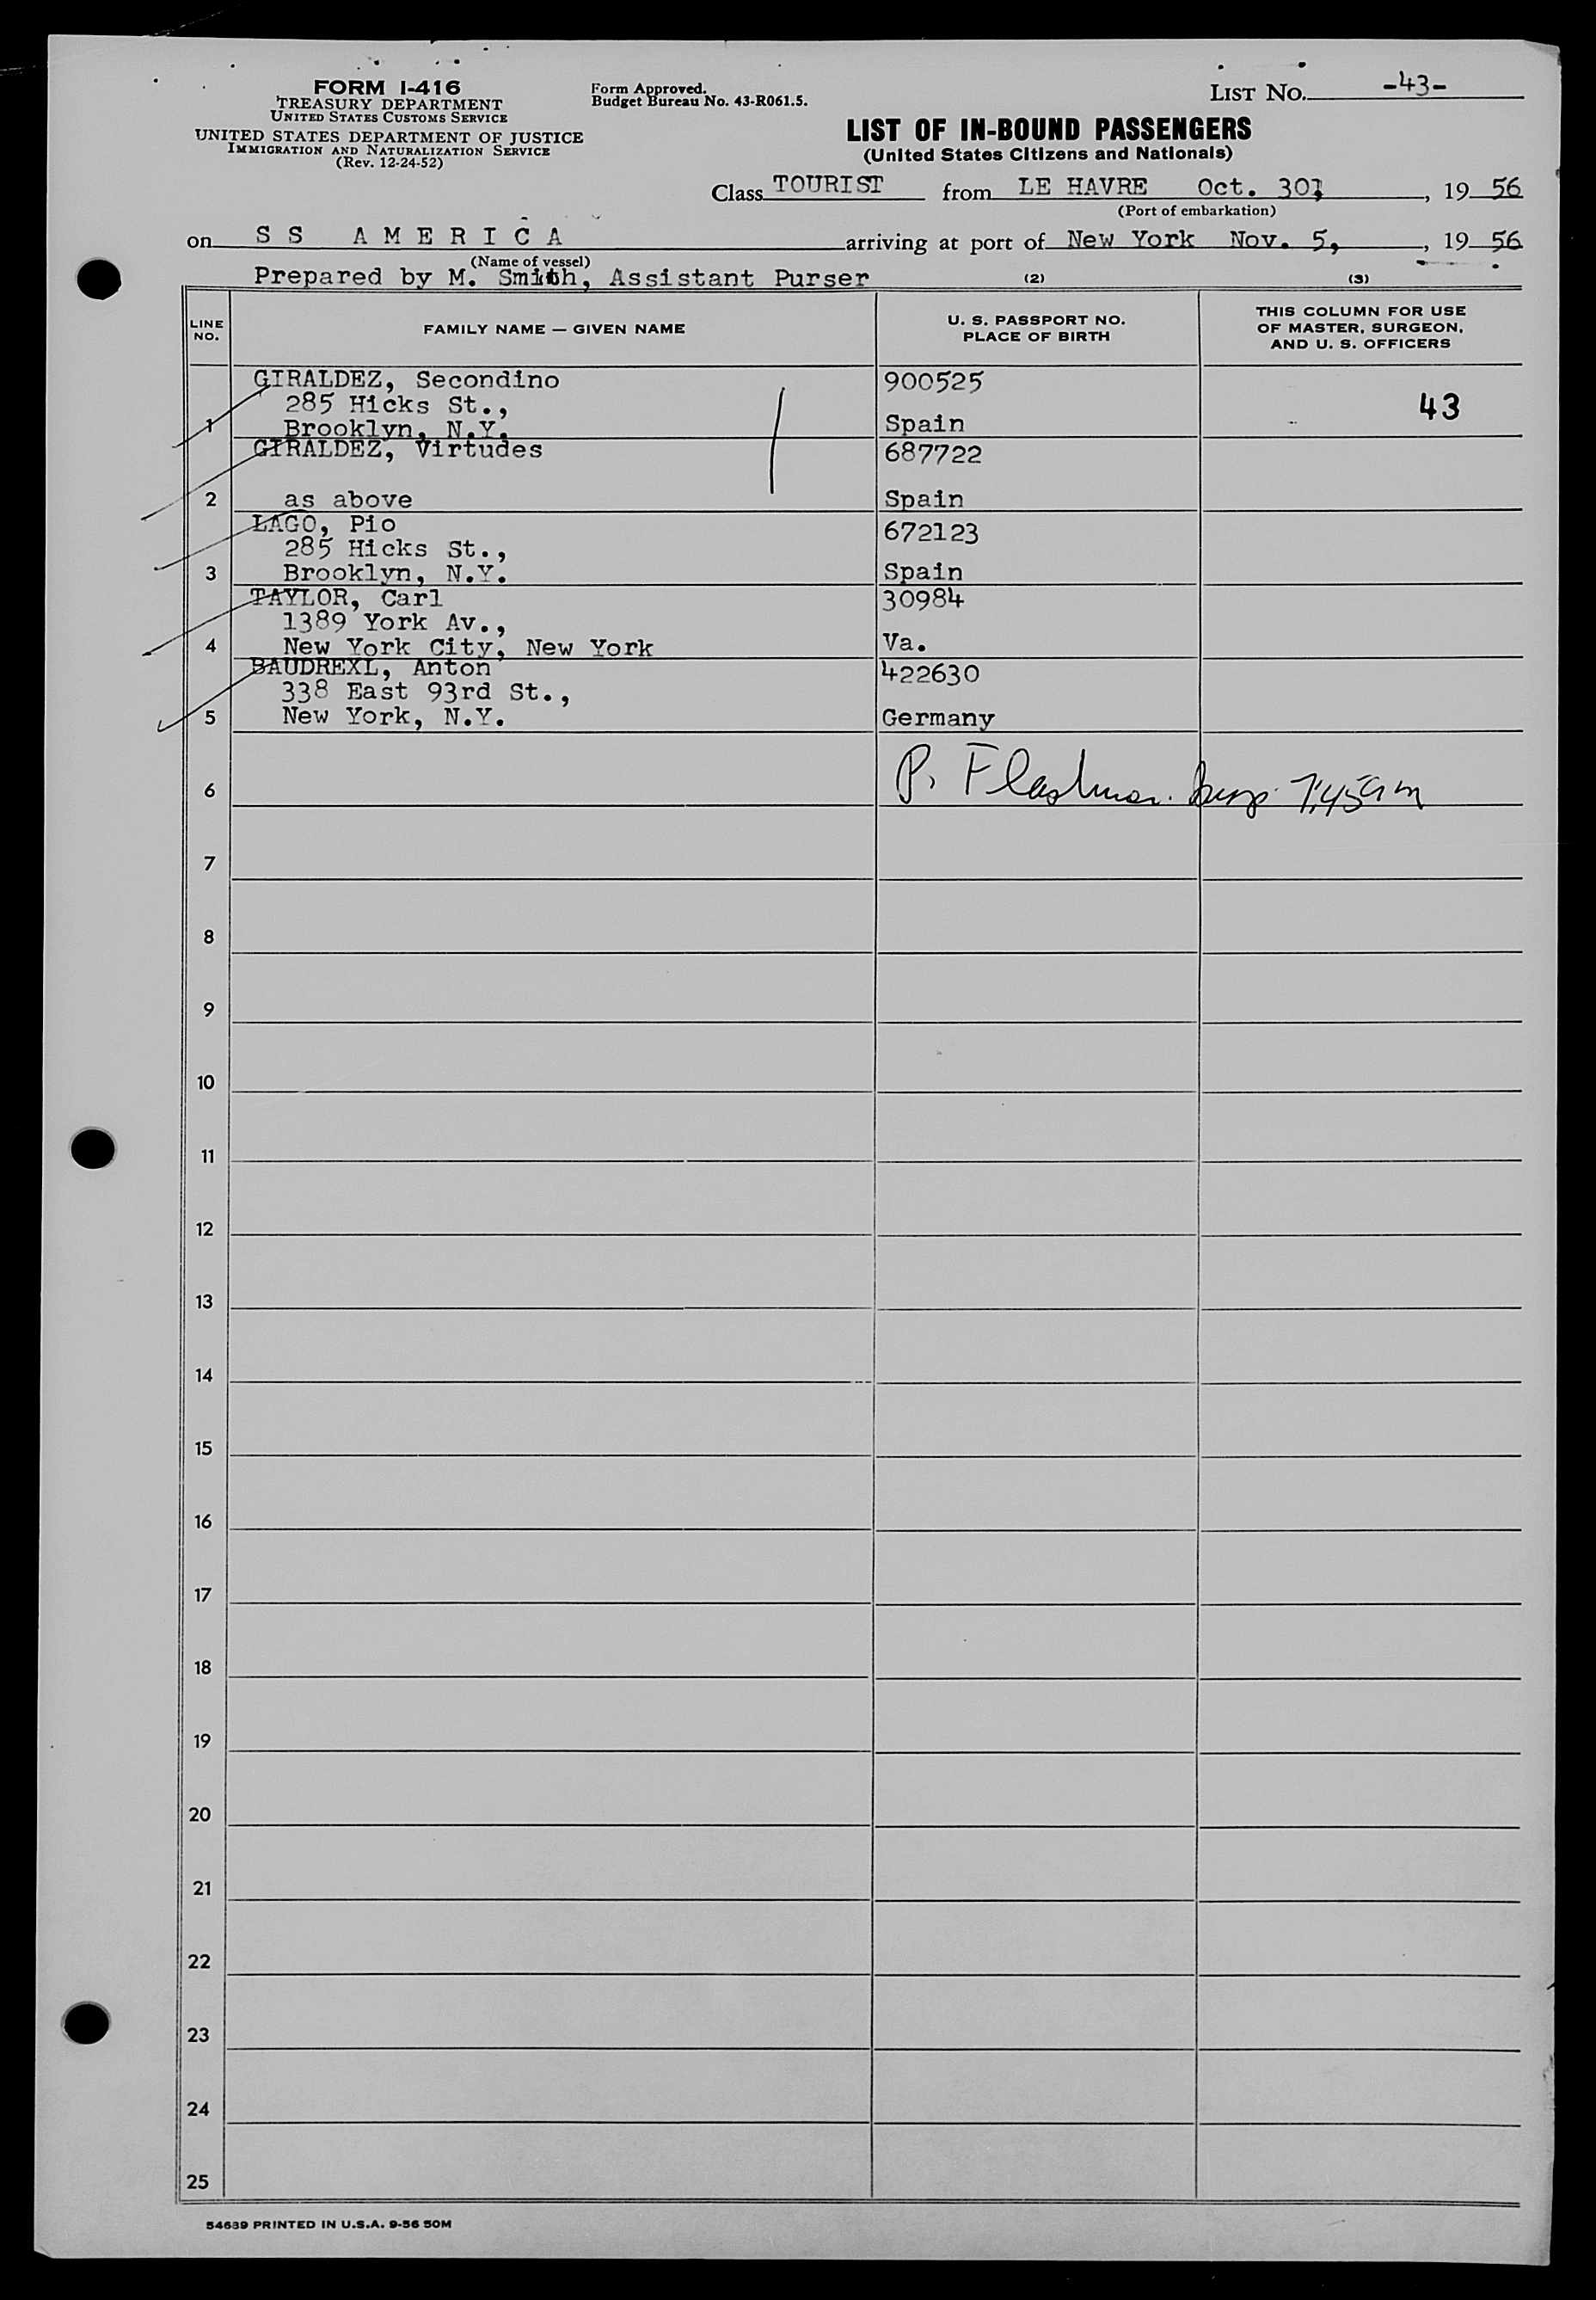 FORM I-416
TREASURY DEPARTMENT
UNITED STATES CUSTOMS SERVICE
UNITED STATES DEPARTMENT OF JUSTICE
IMMIGRATION AND NATURALIZATION SERVICE
(Rev. 12-24-52)
Form Approved.
Budget Bureau No. 43-R061.5.
LIST No. -43-
LIST OF IN-BOUND PASSENGERS
(United States Citizens and Nationals)
Class TOURIST from LE HAVRE Oct. 30, 19 56
(Port of embarkation)
on S S A M E R I C A arriving at port of New York Nov. 5, 19 56
(Name of vessel)
Prepared by M. Smith, Assistant Purser (2) (3)
LINE NO. FAMILY NAME — GIVEN NAME U. S. PASSPORT NO. PLACE OF BIRTH THIS COLUMN FOR USE OF MASTER, SURGEON, AND U. S. OFFICERS
GIRALDEZ, Secondino 900525
285 Hicks St., 43
1 Brooklyn, N.Y. Spain
GIRALDEZ, Virtudes 687722
2 as above Spain
LAGO, Pio 672123
285 Hicks St.,
3 Brooklyn, N.Y. Spain
TAYLOR, Carl 30984
1389 York Av.,
4 New York City, New York Va.
BAUDREXL, Anton 422630
338 East 93rd St.,
5 New York, N.Y. Germany
6 P. 7:45 am
7
8
9
10
11
12
13
14
15
16
17
18
19
20
21
22
23
24
25
54639 PRINTED IN U.S.A. 9-56 50M